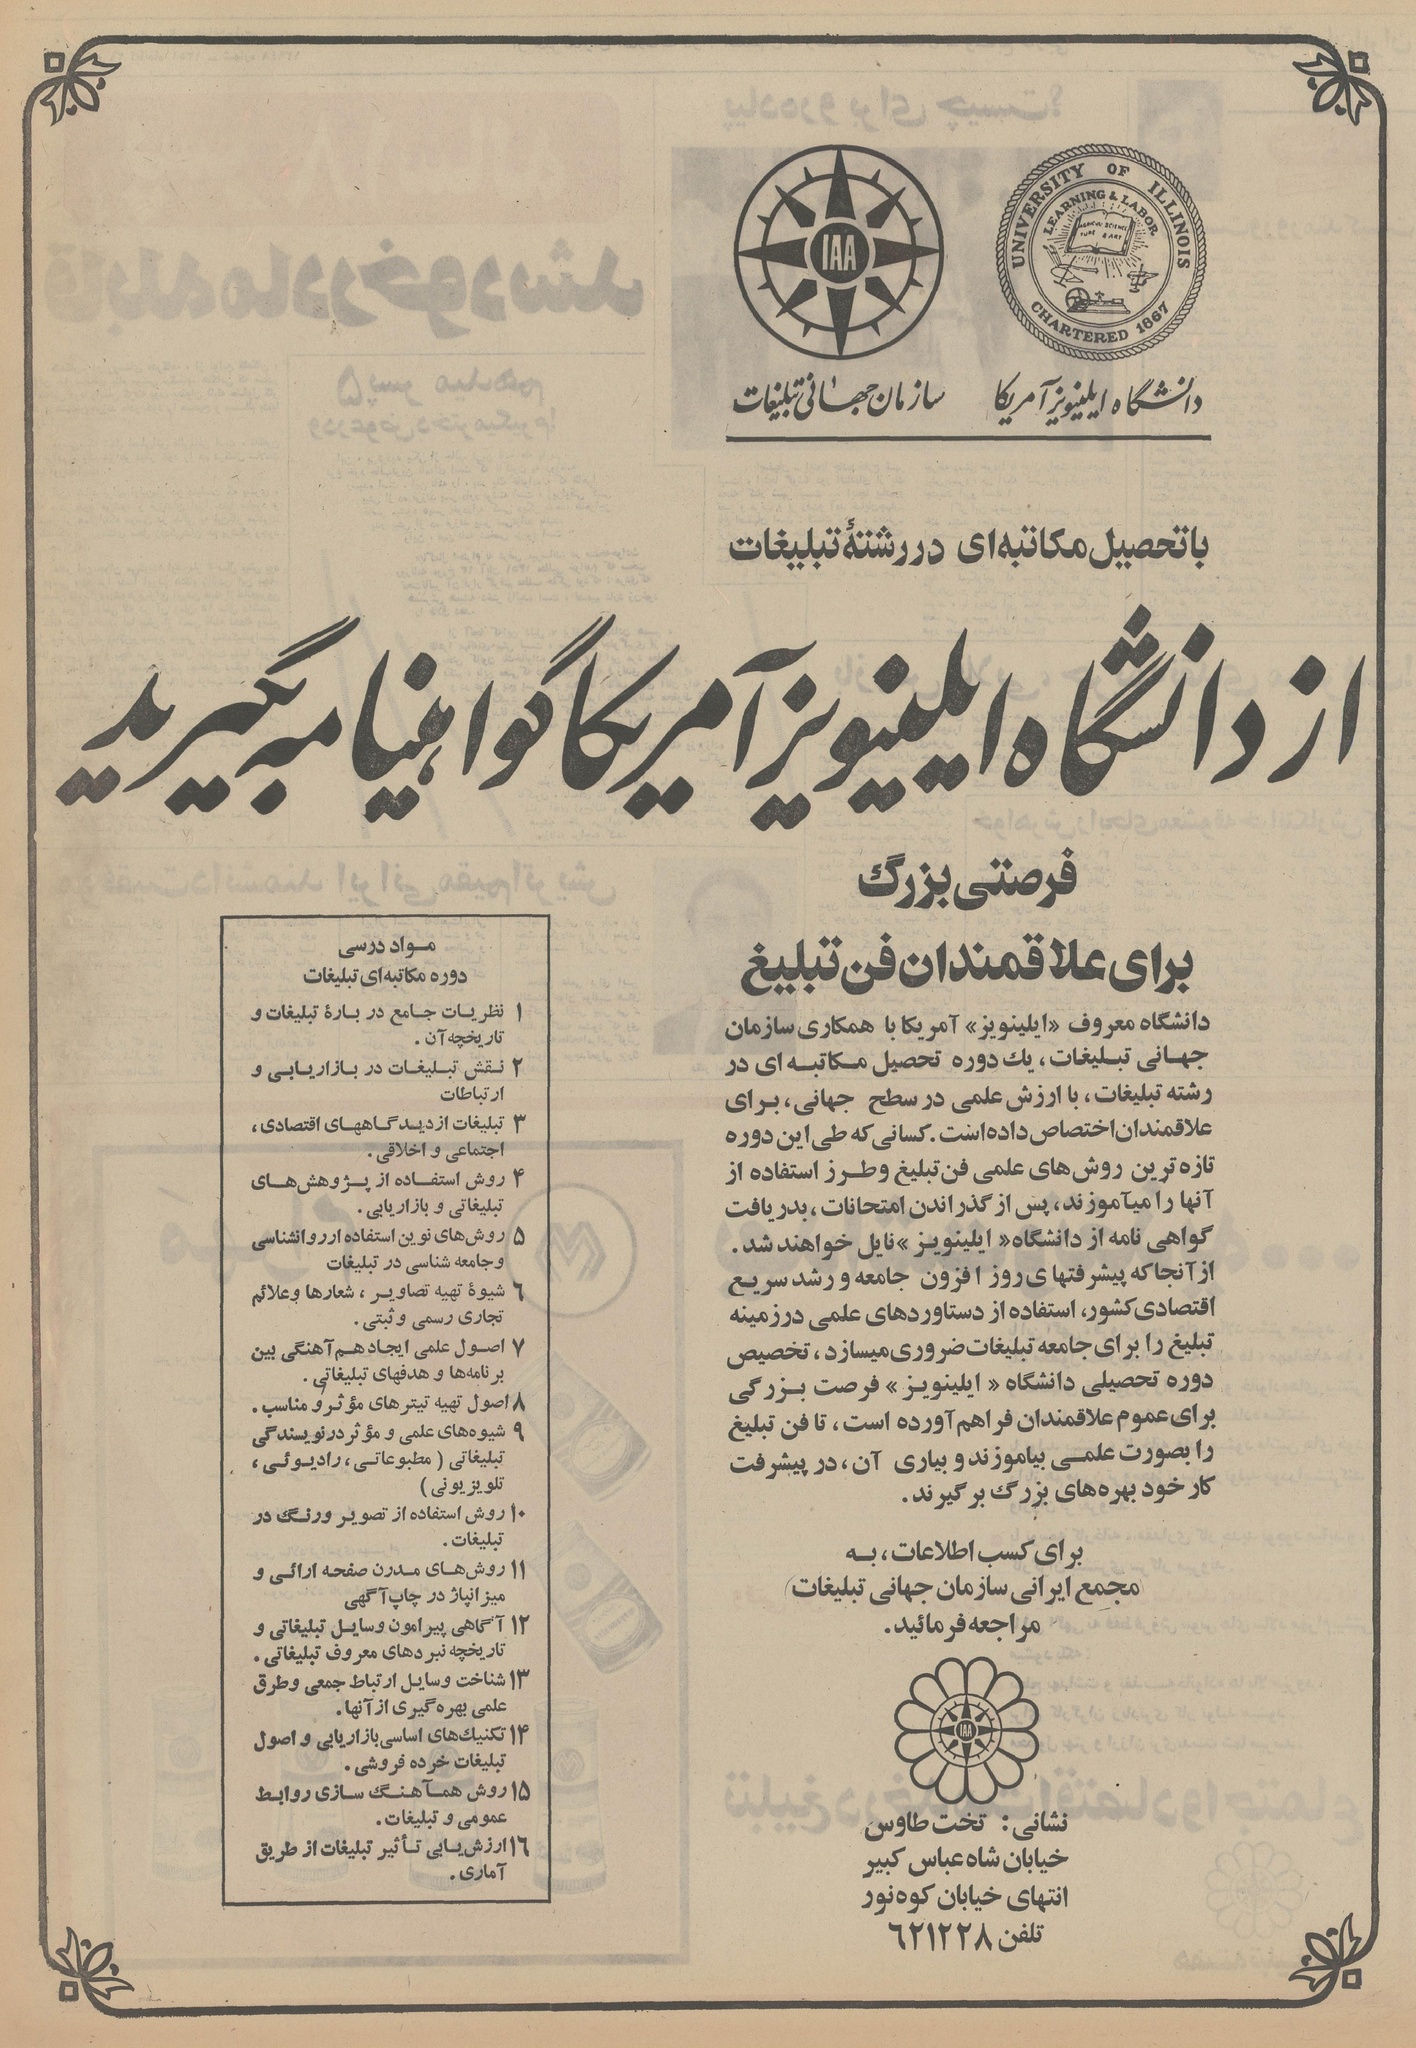 UNIVERSITY OF ILLINOIS
LEARNING & LABOR
CHARTERED 1867
IAA
دانشگاه ایلینویز آمریکا
سازمان جهانی تبلیغات
با تحصیل مکاتبه‌ای در رشتهٔ تبلیغات
از دانشگاه ایلینویز آمریکا گواهینامه بگیرید
فرصتی بزرگ
برای علاقمندان فن تبلیغ
دانشگاه معروف «ایلینویز» آمریکا با همکاری سازمان
جهانی تبلیغات، یك دوره تحصیل مکاتبه ای در
رشته تبلیغات، با ارزش علمی در سطح جهانی، برای
علاقمندان اختصاص داده است. کسانی که طی این دوره
تازه ترین روش‌های علمی فن تبلیغ و طرز استفاده از
آنها را میآموزند، پس از گذراندن امتحانات، بدریافت
گواهی نامه از دانشگاه « ایلینویز » نایل خواهند شد.
از آنجا که پیشرفتهای روز افزون جامعه و رشد سریع
اقتصادی کشور، استفاده از دستاوردهای علمی در زمینه
تبلیغ را برای جامعه تبلیغات ضروری میسازد، تخصیص
دوره تحصیلی دانشگاه « ایلینویز » فرصت بزرگی
برای عموم علاقمندان فراهم آورده است، تا فن تبلیغ
را بصورت علمی بیاموزند و بیاری آن، در پیشرفت
کار خود بهره‌های بزرگ بر گیرند.
برای کسب اطلاعات، به
(مجمع ایرانی سازمان جهانی تبلیغات)
مراجعه فرمائید.
IAA
نشانی: تخت طاوس
خیابان شاه عباس کبیر
انتهای خیابان کوه نور
تلفن ۶۲۱۲۲۸
مواد درسی
دوره مکاتبه‌ای تبلیغات
۱ نظریات جامع در بارهٔ تبلیغات و
تاریخچه آن.
۲ نقش تبلیغات در بازاریابی و
ارتباطات
۳ تبلیغات از دیدگاههای اقتصادی،
اجتماعی و اخلاقی.
۴ روش استفاده از پژوهش‌های
تبلیغاتی و بازاریابی.
۵ روش‌های نوین استفاده ازروانشناسی
و جامعه شناسی در تبلیغات
۶ شیوهٔ تهیه تصاویر، شعارها و علائم
تجاری رسمی و ثبتی.
۷ اصول علمی ایجاد هم‌آهنگی بین
برنامه‌ها و هدفهای تبلیغاتی.
۸ اصول تهیه تیترهای مؤثر و مناسب.
۹ شیوه‌های علمی و مؤثر در نویسندگی
تبلیغاتی ( مطبوعاتی، رادیوئی،
تلویزیونی )
۱۰ روش استفاده از تصویر و رنگ در
تبلیغات.
۱۱ روش‌های مدرن صفحه ارائی و
میزانپاژ در چاپ آگهی
۱۲ آگاهی پیرامون وسایل تبلیغاتی و
تاریخچه نبردهای معروف تبلیغاتی.
۱۳ شناخت وسایل ارتباط جمعی و طرق
علمی بهره گیری از آنها.
۱۴ تکنیك‌های اساسی بازاریابی و اصول
تبلیغات خرده فروشی.
۱۵ روش هم‌آهنگ سازی روابط
عمومی و تبلیغات.
۱۶ ارزش‌یابی تأثیر تبلیغات از طریق
آماری.